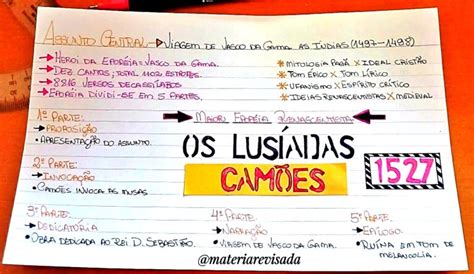 Assunto Central → Viagem de Vasco da Gama às Índias (1497-1498)
→ Herói da Epopéia = Vasco da Gama.
→ Dez cantos; total 1102 estrofes.
→ 8816 versos decassílabos
→ Epopéia divide-se em 5 partes.
* Mitologia Pagã x Ideal Cristão
* Tom Épico x Tom Lírico
* Ufanismo x Espírito Crítico
* Ideias Renascentistas x Medieval
→ Maior Epopéia Renascentista ←
OS LUSÍADAS
CAMÕES
1527
1ª Parte:
→ Proposição
• Apresentação do assunto.
2ª Parte:
→ Invocação
• Camões invoca as musas
3ª Parte:
→ Dedicatória
• Obra dedicada ao Rei D. Sebastião.
4ª Parte:
→ Narração
• Viagem de Vasco da Gama.
5ª Parte:
→ Epílogo
• Ruína em tom de melancolia.
@materiarevisada